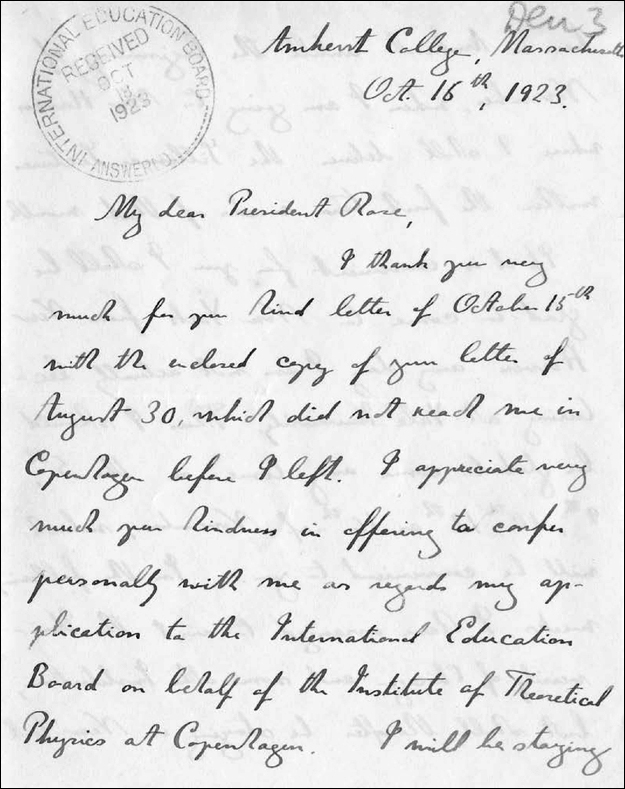 Den 3
INTERNATIONAL EDUCATION BOARD
RECEIVED
OCT
1923
ANSWERED
Amherst College, Massachusetts
Oct. 16th, 1923.
My dear President Rose,
I thank you very
much for your kind letter of October 15th
with the enclosed copy of your letter of
August 30, which did not reach me in
Copenhagen before I left. I appreciate very
much your kindness in offering to confer
personally with me as regards my ap-
plication to the International Education
Board on behalf of the Institute of Theoretical
Physics at Copenhagen. I will be staying